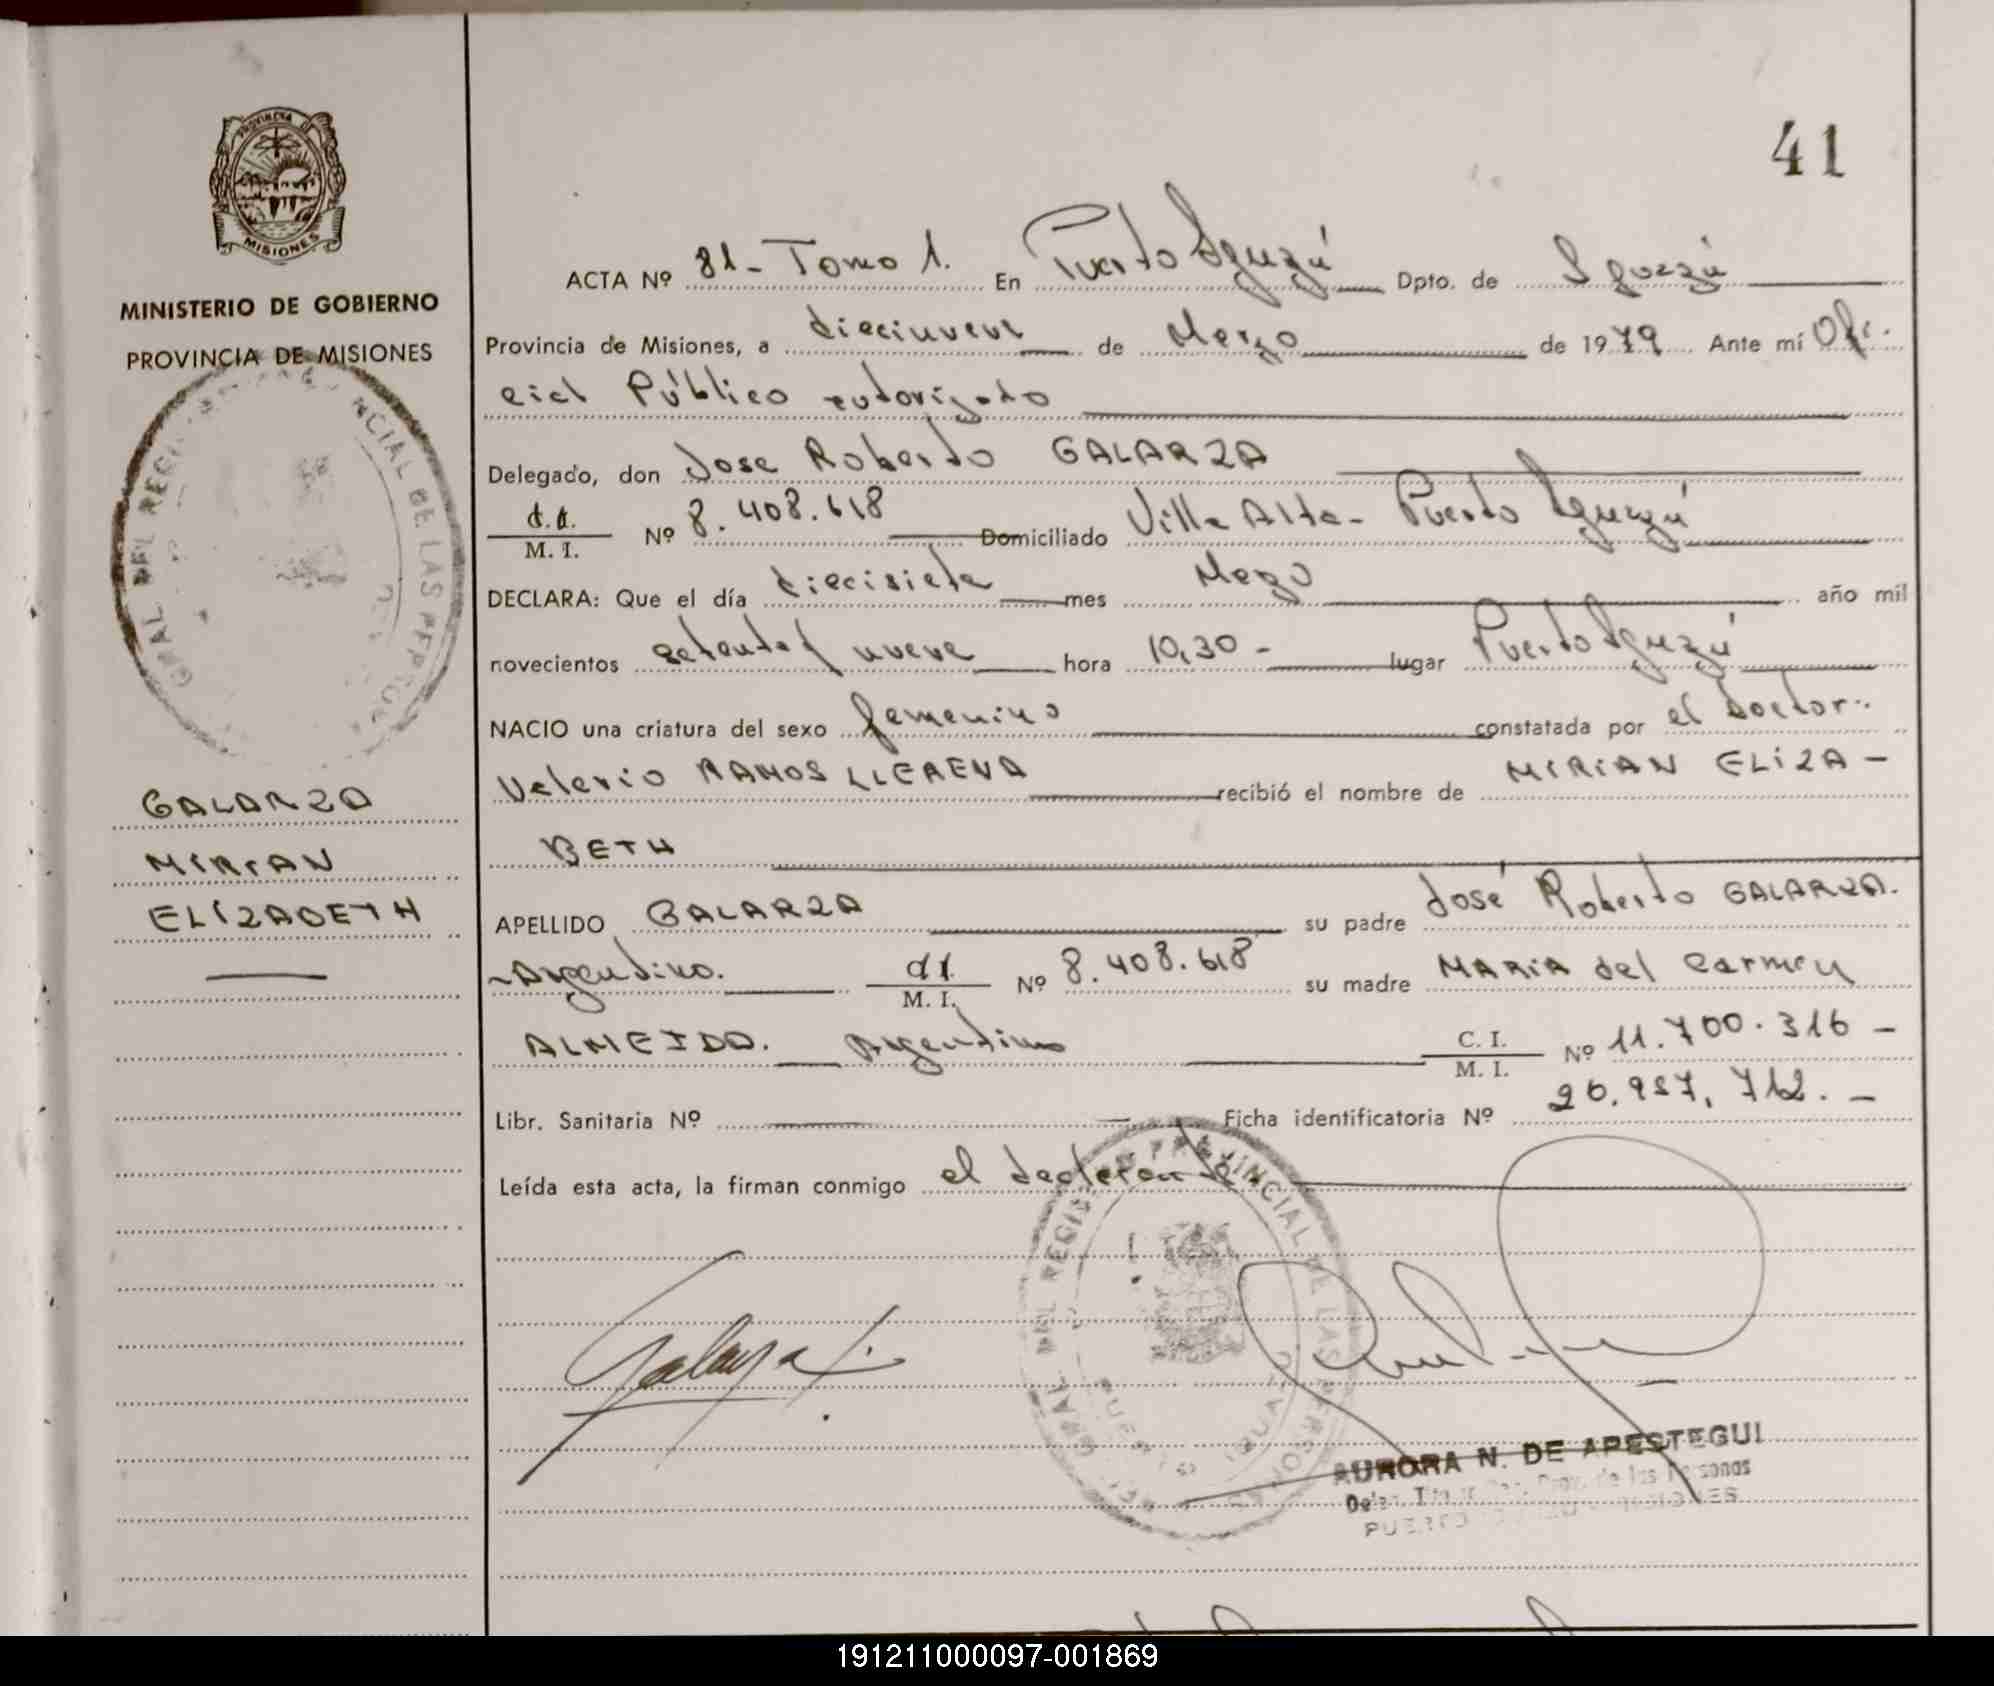 41
PROVINCIA DE
MISIONES
MINISTERIO DE GOBIERNO
PROVINCIA DE MISIONES
GRAL DEL REGI NCIAL DE LAS PERSON
GALARZA
MIRIAN
ELIZABETH
ACTA Nº 81 - Tomo 1. En Puerto Iguazú Dpto. de Iguazú
Provincia de Misiones, a diecinueve de Marzo de 1979 Ante mí Ofi-
cial Público autorizado
Delegado, don Jose Roberto GALARZA
d.i. M. I. Nº 8.408.618 Domiciliado Villa Alta - Puerto Iguazú
DECLARA: Que el día diecisiete mes Marzo año mil
novecientos setenta y nueve hora 10,30 - lugar Puerto Iguazú
NACIO una criatura del sexo femenino constatada por el Doctor
Valerio RAMOS LLERENA recibió el nombre de MIRIAN ELIZA-
BETH
APELLIDO GALARZA su padre José Roberto GALARZA.
- Argentino. d.i. M. I. Nº 8.408.618 su madre MARIA del Carmen
ALMEIDA. Argentina C. I. M. I. Nº 11.700.316 -
Libr. Sanitaria Nº Ficha identificatoria Nº 26.957.712. -
Leída esta acta, la firman conmigo el declarante
Galarza
GRAL DEL REGIS PROVINCIAL DE LAS PERSON
PUERTO IGUAZU
AURORA N. DE APESTEGUI
Prov. de las Personas
PUERTO MISIONES
191211000097-001869